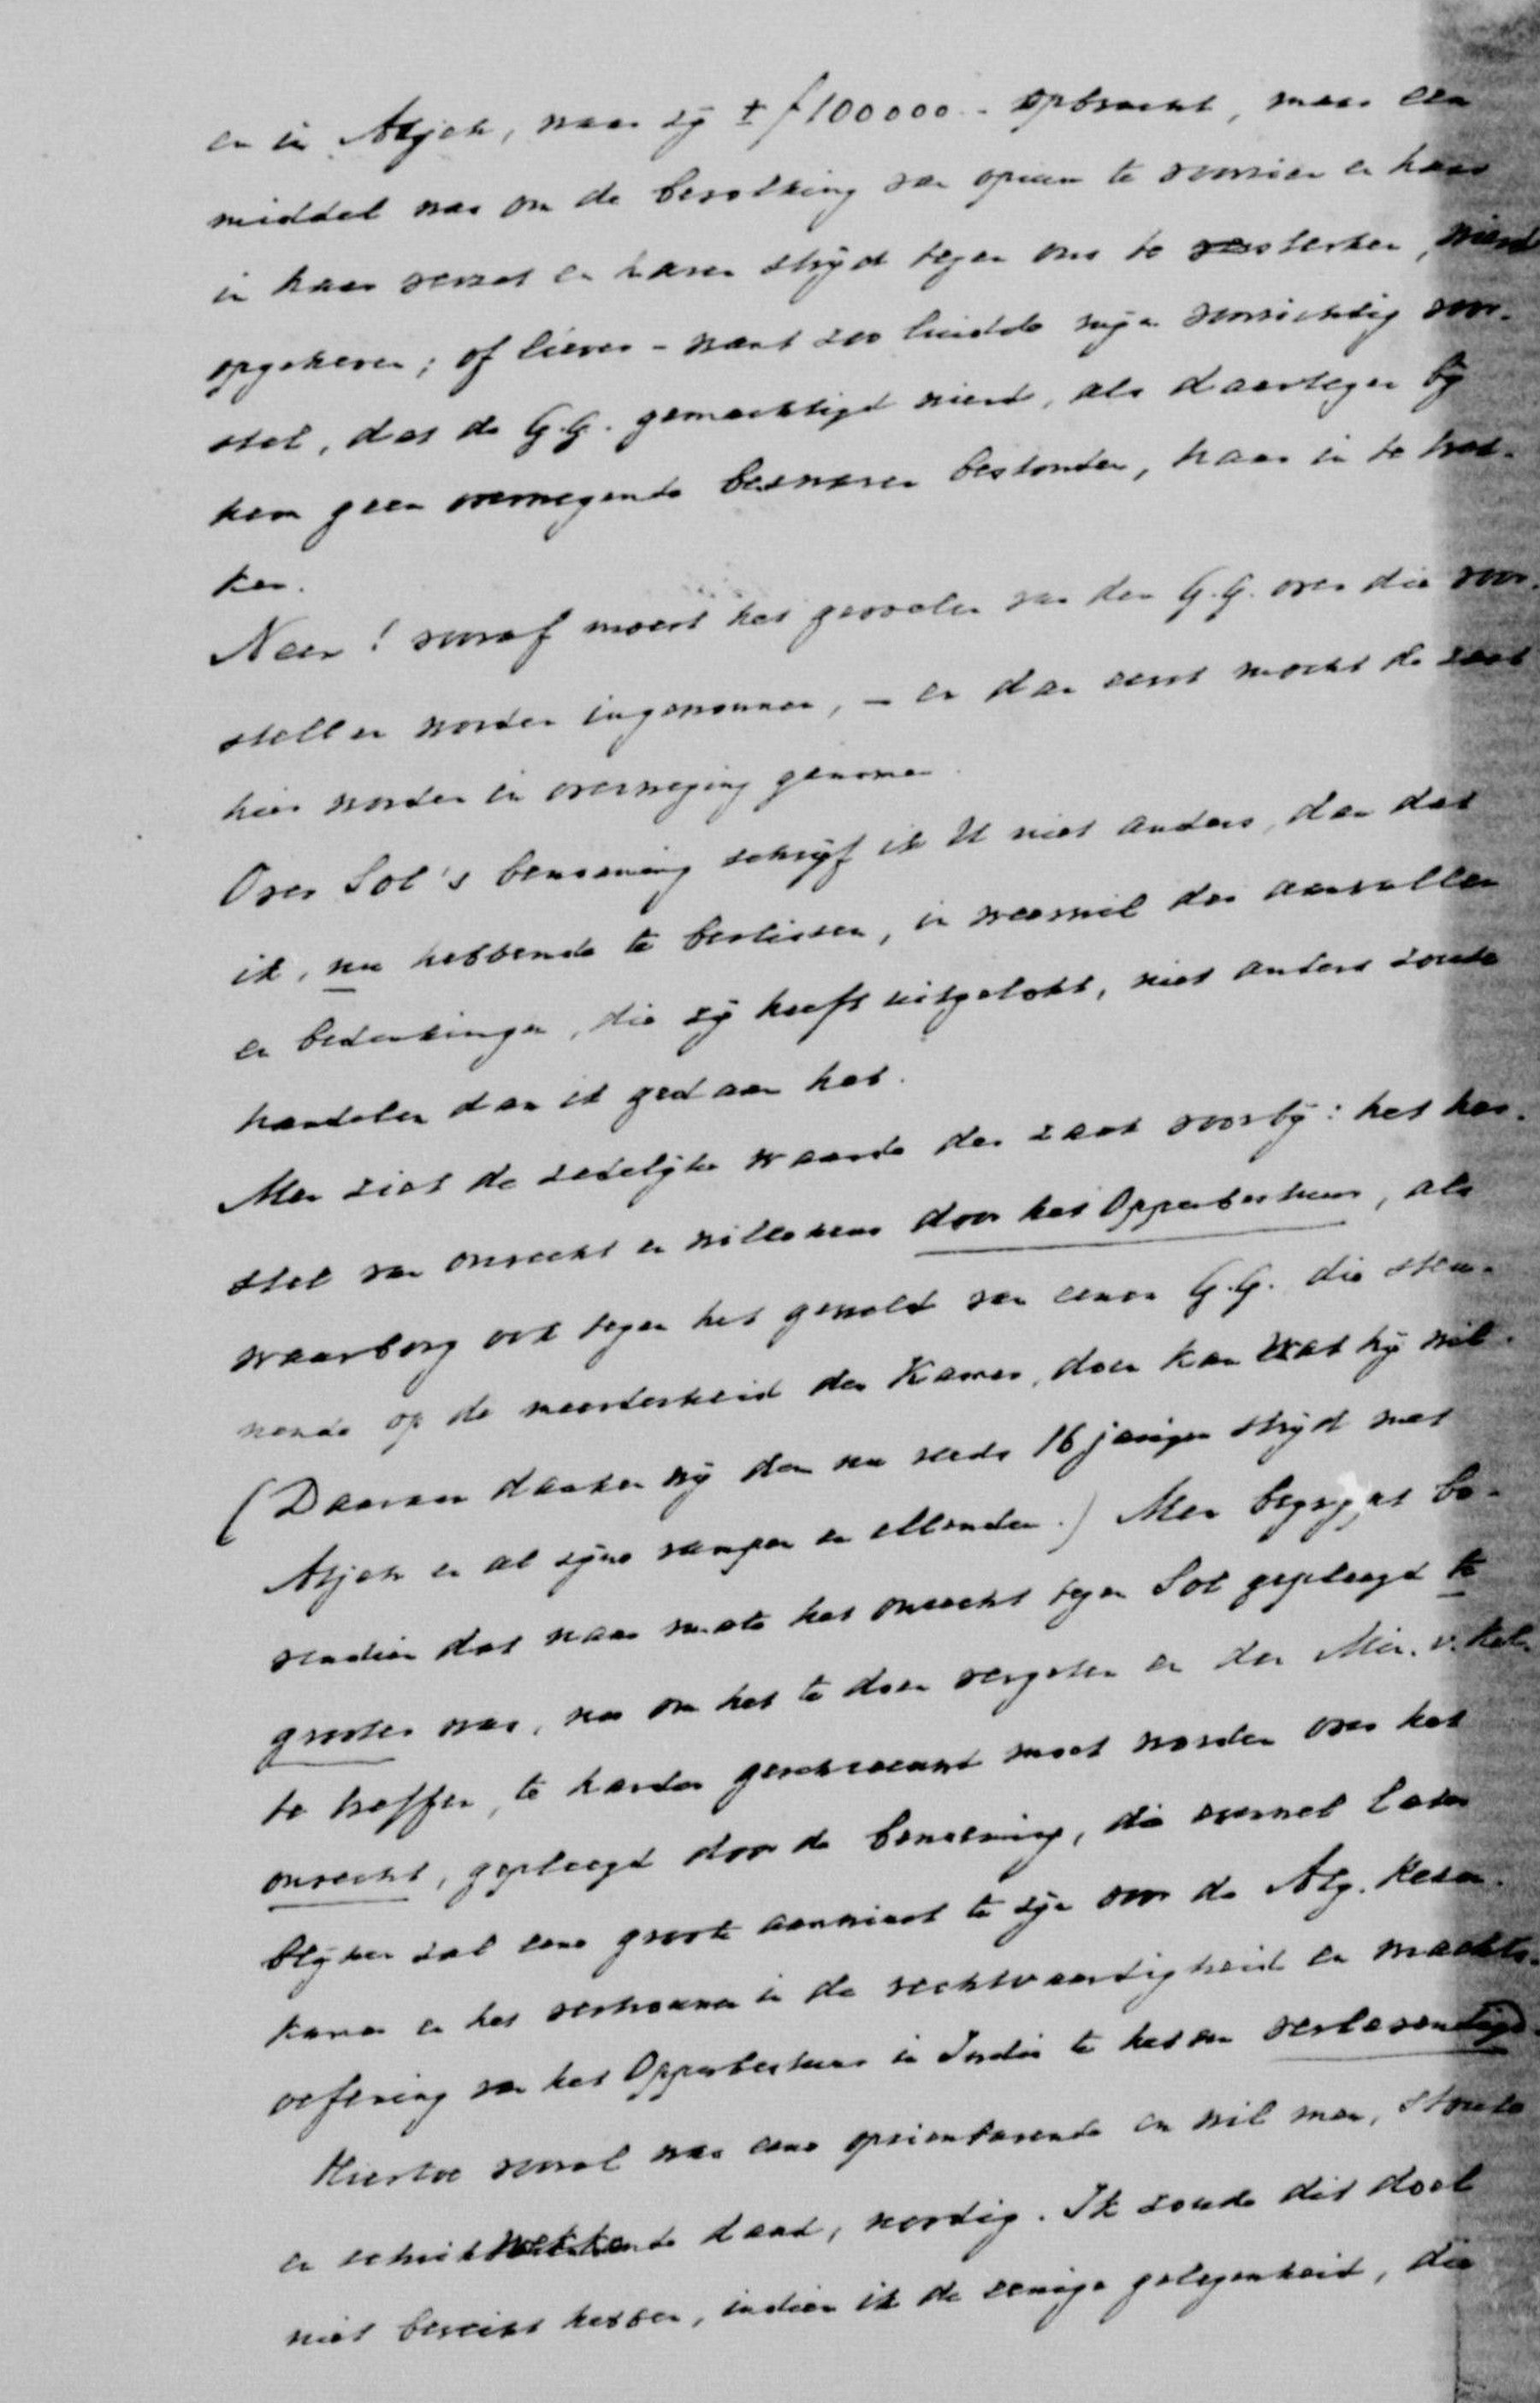 en in Atjeh, waar zij ± f 100000.- opbracht, maar een
middel was om de bevolking van opium te voorzien en haar
in haar verzet en haren strijd tegen ons te versterken, wierd
opgeheven; of liever - want zoo luidde mijn voorzichtig voor-
stel, dat de G.G. gemachtigd wierd, als daartegen bij
hem geen overwegende bezwaren bestonden, haar in te trek-
ken.
Neen! vooraf moest het gevoelen van den G.G. over die voor-
stellen worden ingewonnen, - en dan eerst mocht de zaak
hier worden in overweging genomen.
Over Sol's benoeming schrijf ik U niet anders, dan dat
ik, nu hebbende te beslissen, in weerwil der aanvallen
en bedenkingen, die zij heeft uitgelokt, niet anders zoude
handelen dan ik gedaan heb.
Men ziet de zedelijke waarde der zaak voorbij: het her-
stel van onrecht en willekeur door het Opperbestuur, als
waarborg ook tegen het geweld van eenen G.G. die steu-
nende op de meerderheid der Kamer, doen kan wat hij wil.
(Daaraan danken wij den nu reeds 16 jarigen strijd met
Atjeh en al zijne rampen en ellenden.) Men begrijpt bo-
vendien dat naar mate het onrecht tegen Sol gepleegd te
grooter was, nu om het te doen vergeten en den Min. v. Kol.
te treffen, te harder geschreeuwd moet worden over het
onrecht, gepleegd door de benoeming, die evenwel later
blijken zal eene groote aanwinst te zijn voor de Alg. Reken-
kamer en het vertrouwen in de rechtvaardigheid en machts-
oefening van het Opperbestuur in Indië te hebben verlevendigd.
Hiertoe vooral was eene opzienbarende en wil men, stoute
en schrikwekkende daad, noodig. Ik zoude dit doel
niet bereikt hebben, indien ik de eenige gelegenheid, die